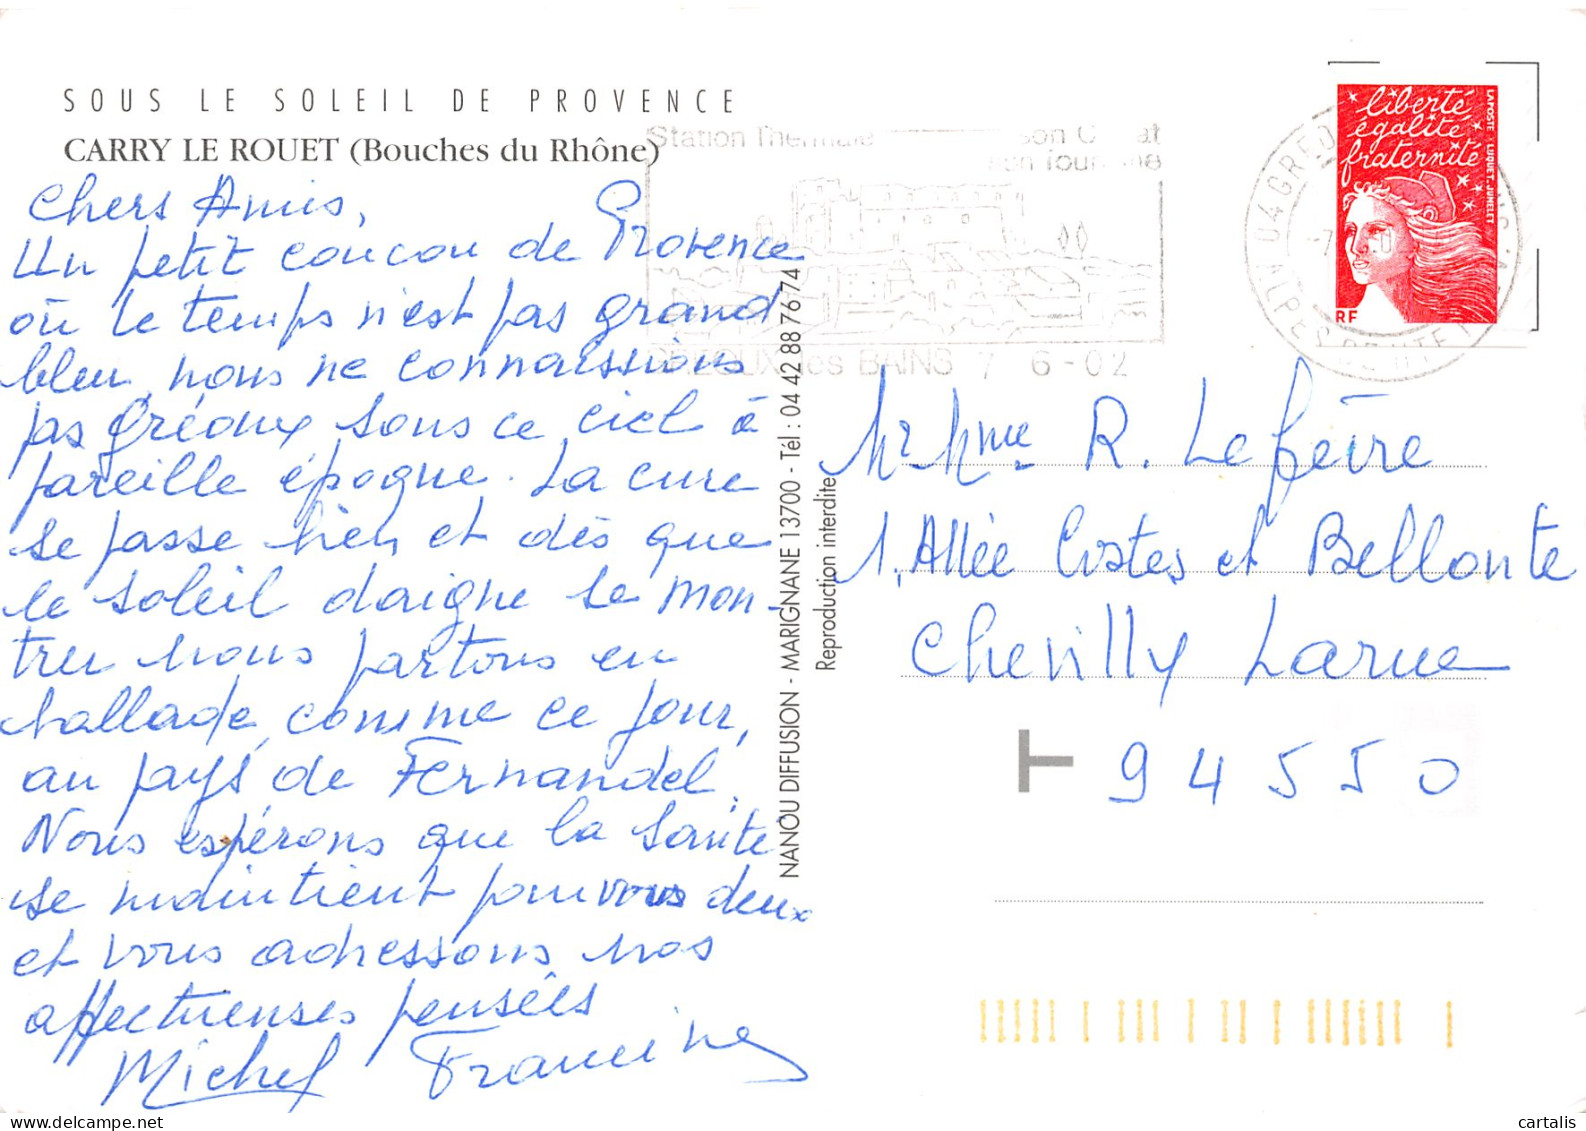 SOUS LE SOLEIL DE PROVENCE
CARRY LE ROUET (Bouches du Rhône)
Chers Amis,
Un petit coucou de Provence
où le temps n'est pas grand
bleu, nous ne connaissions
pas Gréoux sous ce ciel à
pareille époque. La cure
se passe bien et dès que
le soleil daigne se mon-
trer nous partons en
ballade, comme ce jour,
au pays de Fernandel.
Nous espérons que la santé
se maintient pour vous deux
et vous adressons nos
affectueuses pensées
Michel Francine
NANOU DIFFUSION - MARIGNANE 13700 - Tél : 04 42 88 76 74
Reproduction interdite
Station Thermale
les BAINS 7 6-02
04 GREO
ALPES DE HTE
liberté
égalité
fraternité
LA POSTE LUQUET. JUMELET
RF
Mr Mme R. Lefèvre
1, Allée Costes et Bellonte
Chevilly Larue
T 94550
cartalis